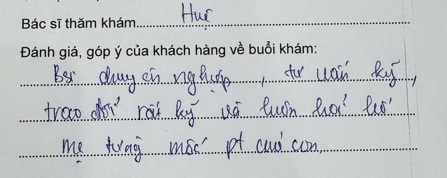 Bác sĩ thăm khám.......Huệ
Đánh giá, góp ý của khách hàng về buổi khám:
Bsi chuyên nghiệp, tư vấn kỹ,
trao đổi rất kỹ và luôn hỏi
mẹ từng mốc pt của con.